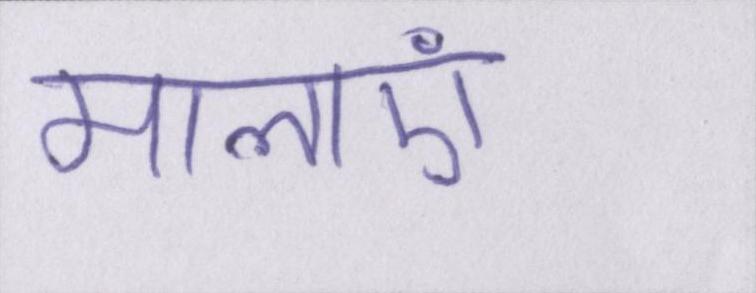 मालाएं